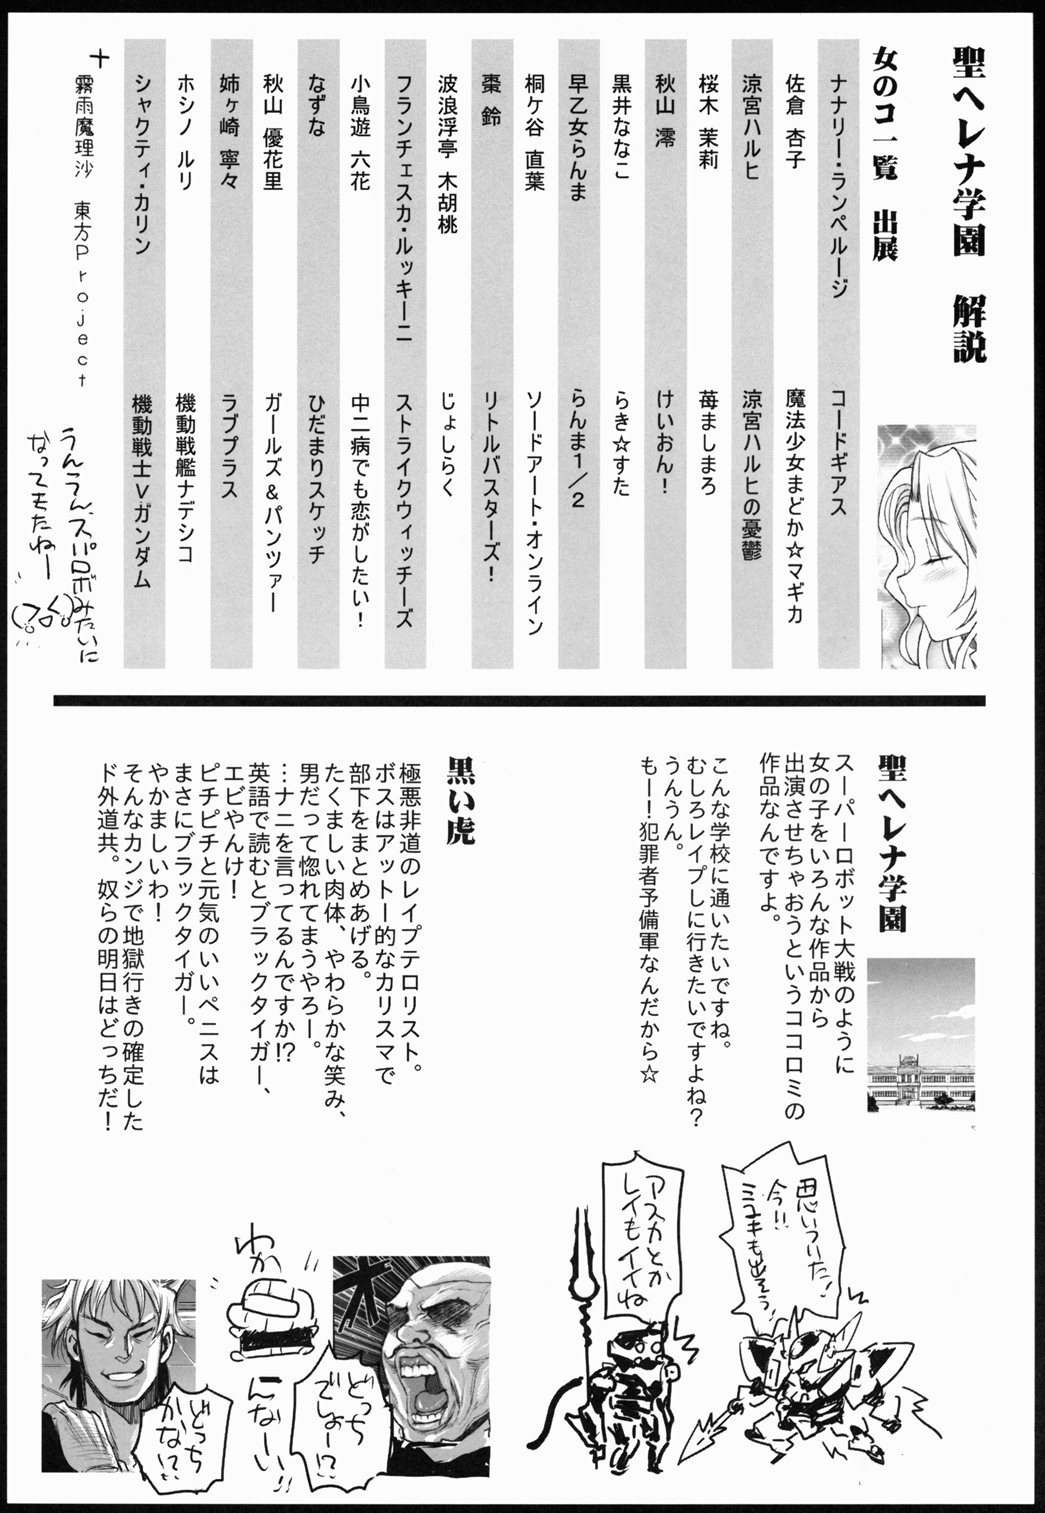 聖ヘレナ学園 解説
女のコ一覧 出展
ナナリー・ランペルージ コードギアス
佐倉 杏子 魔法少女まどか☆マギカ
涼宮ハルヒ 涼宮ハルヒの憂鬱
桜木 茉莉 苺ましまろ
秋山 澪 けいおん！
黒井ななこ らき☆すた
早乙女らんま らんま１／２
桐ケ谷 直葉 ソードアート・オンライン
棗 鈴 リトルバスターズ！
波浪浮亭 木胡桃 じょしらく
フランチェスカ・ルッキーニ ストライクウィッチーズ
小鳥遊 六花 中二病でも恋がしたい！
なずな ひだまりスケッチ
秋山 優花里 ガールズ＆パンツァー
姉ヶ崎 寧々 ラブプラス
ホシノ ルリ 機動戦艦ナデシコ
シャクティ・カリン 機動戦士Vガンダム
＋
霧雨魔理沙 東方Project
うんうん、スパロボみたいに
なってきたねー
聖ヘレナ学園
スーパーロボット大戦のように
女の子をいろんな作品から
出演させちゃおうというココロミの
作品なんですよ。
こんな学校に通いたいですね。
むしろレイプしに行きたいですよね？
うんうん。
もー！犯罪者予備軍なんだから☆
思いついた！
今!!
ミユキも出そう！
アスカとか
レイもイイね
黒い虎
極悪非道のレイプテロリスト。
ボスはアットー的なカリスマで
部下をまとめあげる。
たくましい肉体、やわらかな笑み、
男だって惚れてまうやろー。
…ナニを言ってるんですか!?
英語で読むとブラックタイガー、
エビやんけ！
ピチピチと元気のいいペニスは
まさにブラックタイガー。
やかましいわ！
そんなカンジで地獄行きの確定した
ド外道共。奴らの明日はどっちだ！
オ
どっち
でしょー!?
わか
んなーい!!
どっち
かな!?